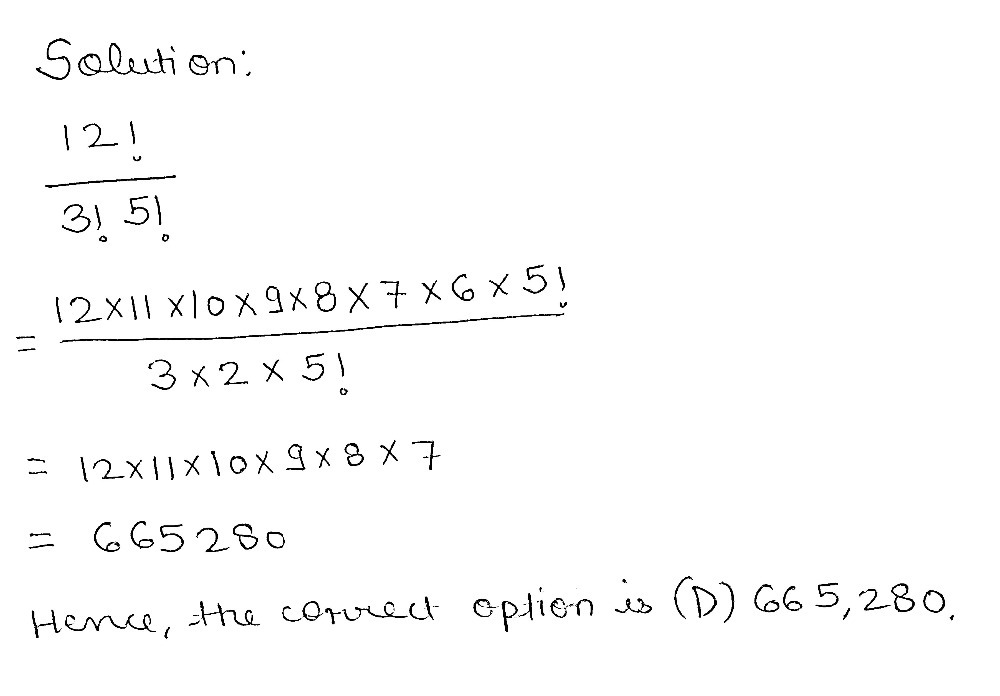 Solution:
12!
3! 5!
= 12×11×10×9×8×7×6×5!
3×2×5!
= 12×11×10×9×8×7
= 665280
Hence, the correct option is (D) 665,280.